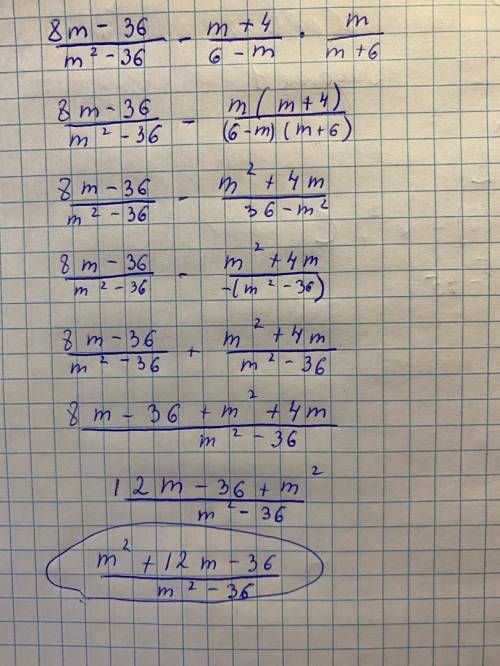 8m - 36 / m² - 36 - m + 4 / 6 - m · m / m + 6
8m - 36 / m² - 36 - m(m + 4) / (6 - m)(m + 6)
8m - 36 / m² - 36 - m² + 4m / 36 - m²
8m - 36 / m² - 36 - m² + 4m / -(m² - 36)
8m - 36 / m² - 36 + m² + 4m / m² - 36
8m - 36 + m² + 4m / m² - 36
12m - 36 + m² / m² - 36
m² + 12m - 36 / m² - 36